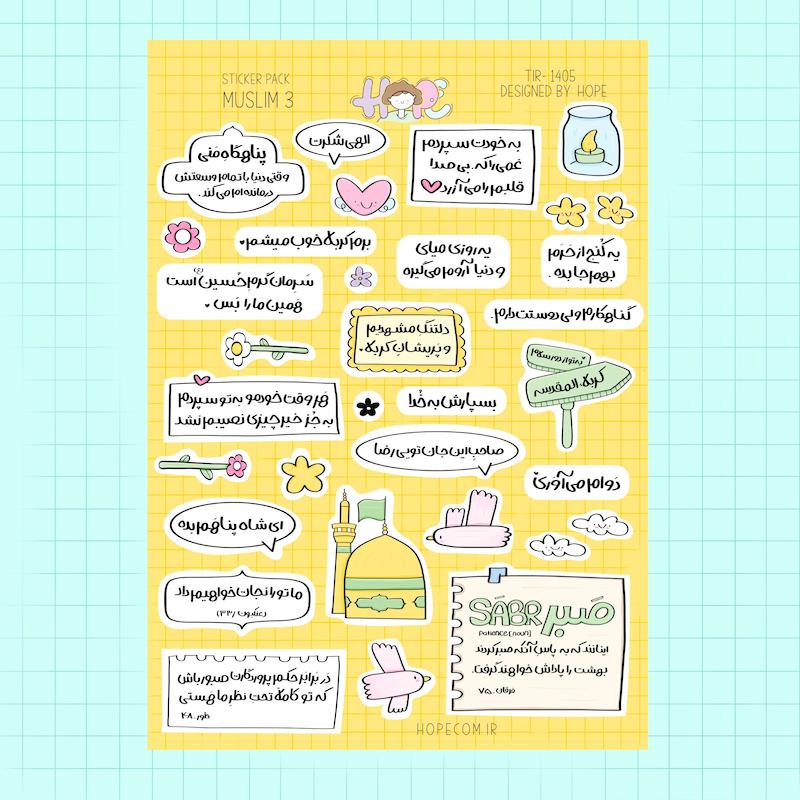 STICKER PACK
MUSLIM 3
HOPE
TIR- 1405
DESIGNED BY HOPE
پناهگاهِ مَنی
وقتی دنیا با تمام وسعتش
درمانده ام می‌کند.
الهی شکرت
به خودت سپردم
غمی را که بی صدا
قلبم را می آزرد
برم کربلا خوب میشم.
یه روزی میای
و دنیا آروم می‌گیره
یه کُنج از حَرَم
بهم جا بده.
سَرِمان گرم حُسین (ع) است
همین ما را بَس.
دلتنگ مشهدیم
و پریشانِ کربلا.
گناهکارم ولی دوستت دارم.
به تو از دور سلام
کربلاء المقدسه
هَر وقت خودمو به تو سپردم
به جُز خیر چیزی نصیبم نشد
بسپارش به خُدا
صاحب این جان تویی رضا
دَوام می‌آوری
ای شاه پناهم بده
ما تو را نجات خواهیم داد
(عنکبوت / ۳۳)
SABR صَبر
patience [noun]
اینانند که به پاس آنکه صبر کردند
بهشت را پاداش خواهند گرفت.
فرقان. ۷۵
دَر بَرابَر حکم پروردگارت صبور باش
که تو کاملا تحت نظر ما هستی
طور. ۴۸
HOPECOM.IR